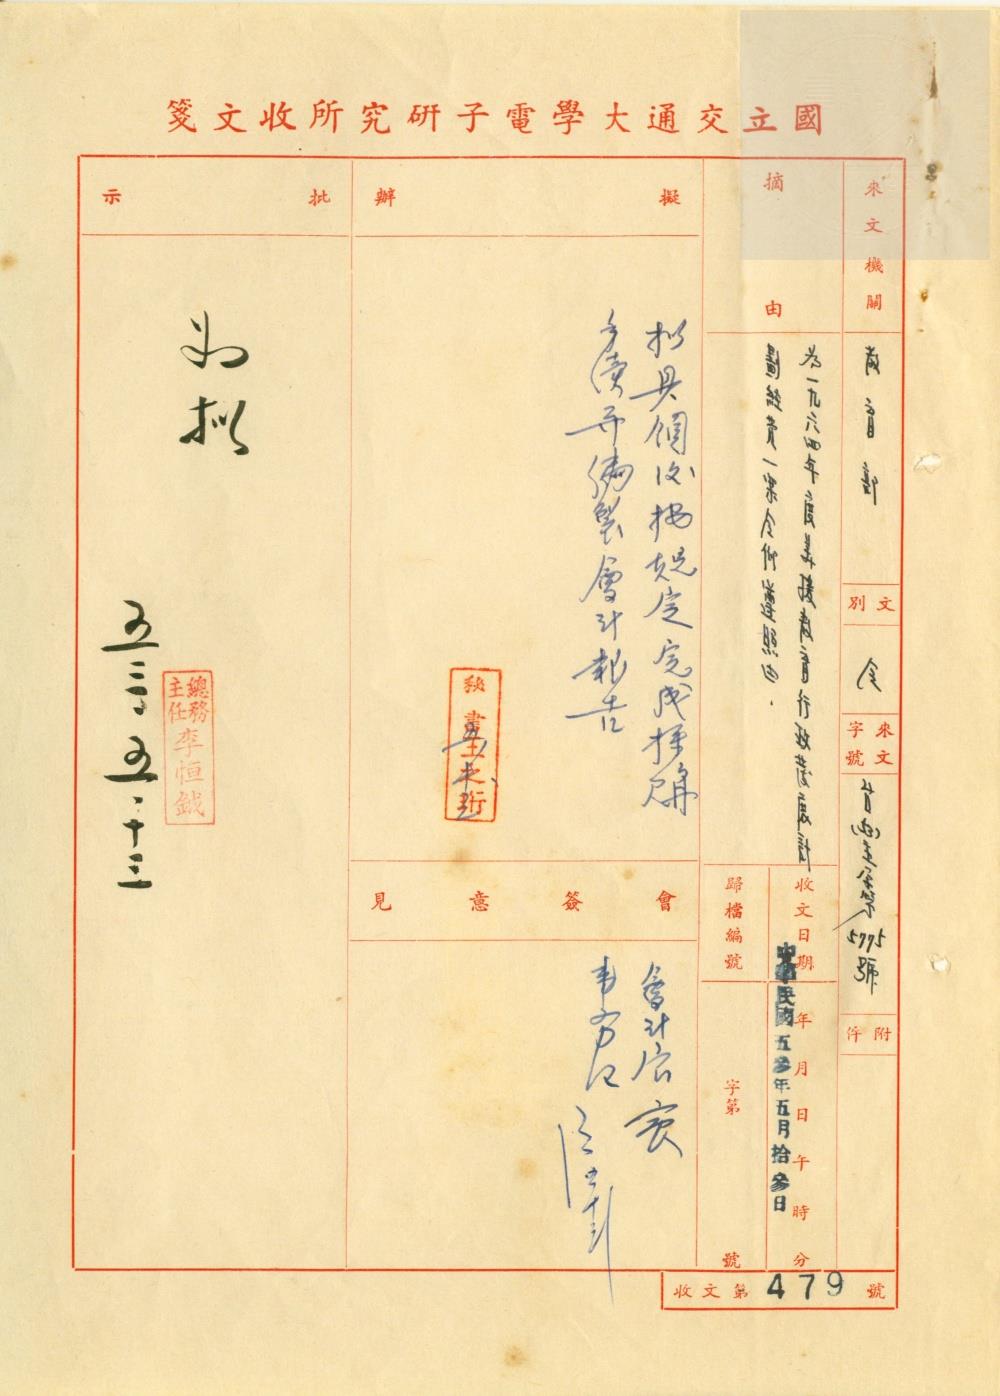 國立交通大學電子研究所收文箋
來文機關
教育部
文別
令
來文字號
5775號
附件
摘由
為一九六四年度美援教育行政發展計
劃經費一案令仰遵照由.
收文日期
年月日午時分
中華民國五參年五月拾參日
歸檔編號
字第
號
擬辦
擬具領後按規定完成採購
手續并編製會計報告
秘書
會簽意見
會計室
批示
如擬
總務主任李恒鉞
五三.五.十三
收文第479號